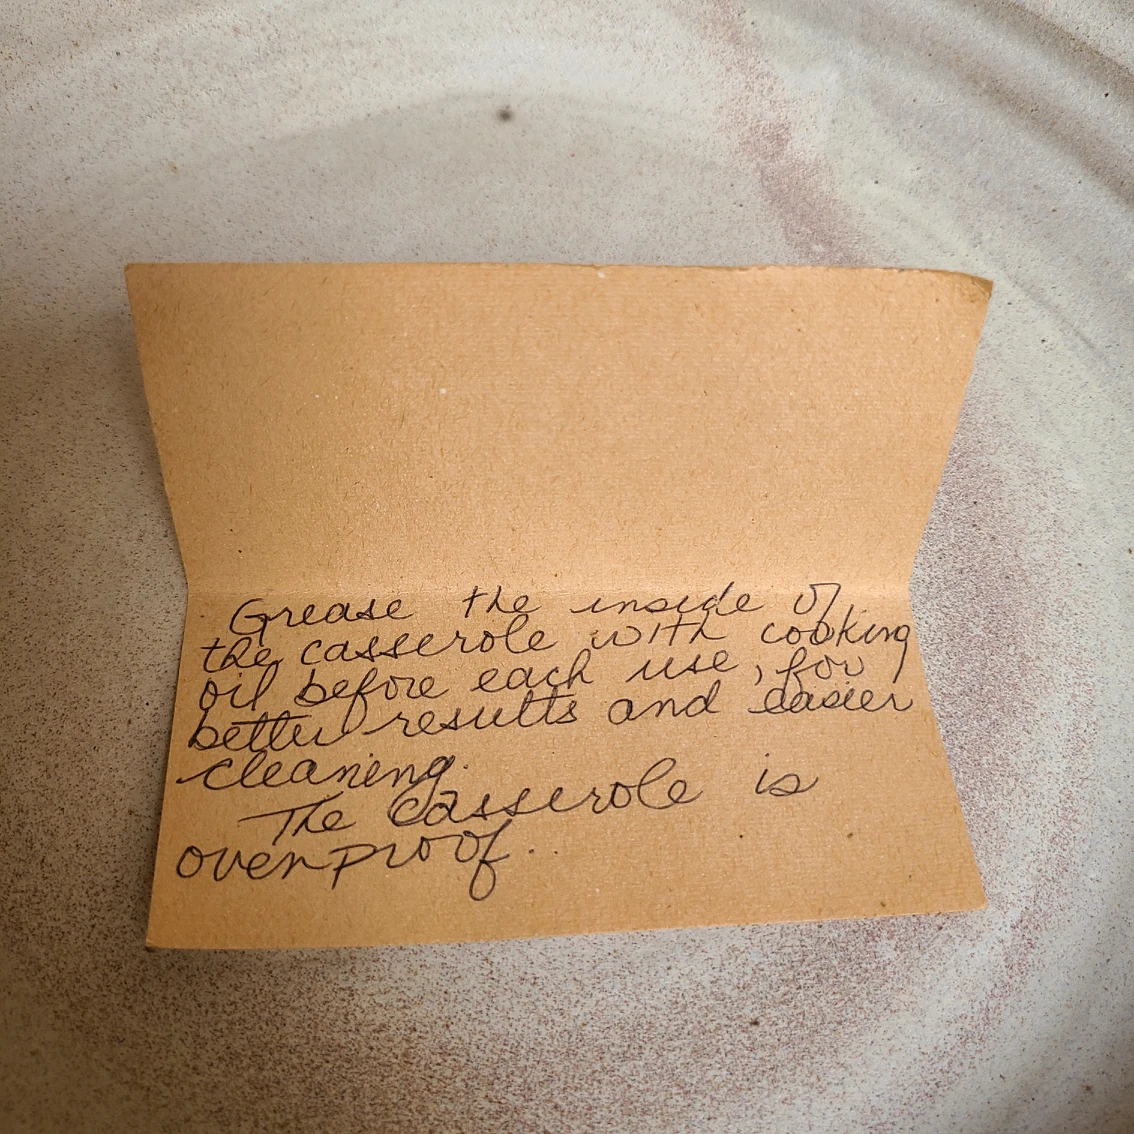 Grease the inside of
the casserole with cooking
oil before each use, for
better results and easier
cleaning.
The Casserole is
ovenproof.